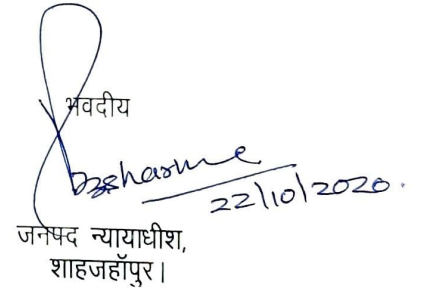 भवदीय
22/10/2020.
जनपद न्यायाधीश,
शाहजहाँपुर।